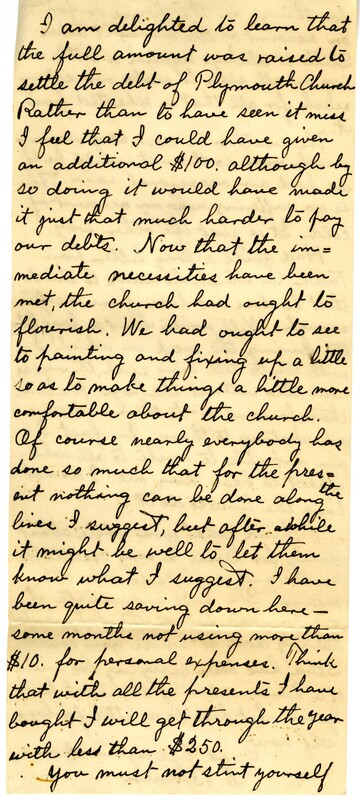 I am delighted to learn that
the full amount was raised to
settle the debt of Plymouth Church
Rather than to have seen it miss
I feel that I could have given
an additional $100. although by
so doing it would have made
it just that much harder to pay
our debts. Now that the im=
mediate necessities have been
met, the church had ought to
flourish. We had ought to see
to painting and fixing up a little
so as to make things a little more
comfortable about the church.
Of course nearly everybody has
done so much that for the pres=
ent nothing can be done along the
lines I suggest, but after awhile
it might be well to let them
know what I suggest. I have
been quite saving down here —
some months not using more than
$10. for personal expenses. Think
that with all the presents I have
bought I will get through the year
with less than $250.
You must not stint yourself